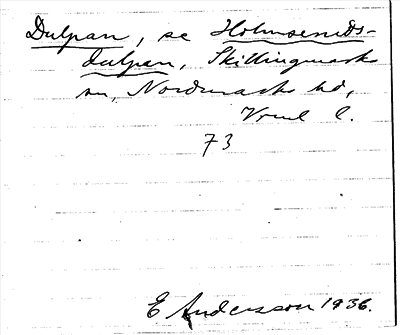 Dulpan, se Holmseruds-
dulpen, Skillingmarks
sn, Nordmarks hd,
Vrml l.
73
E Andersson 1936.